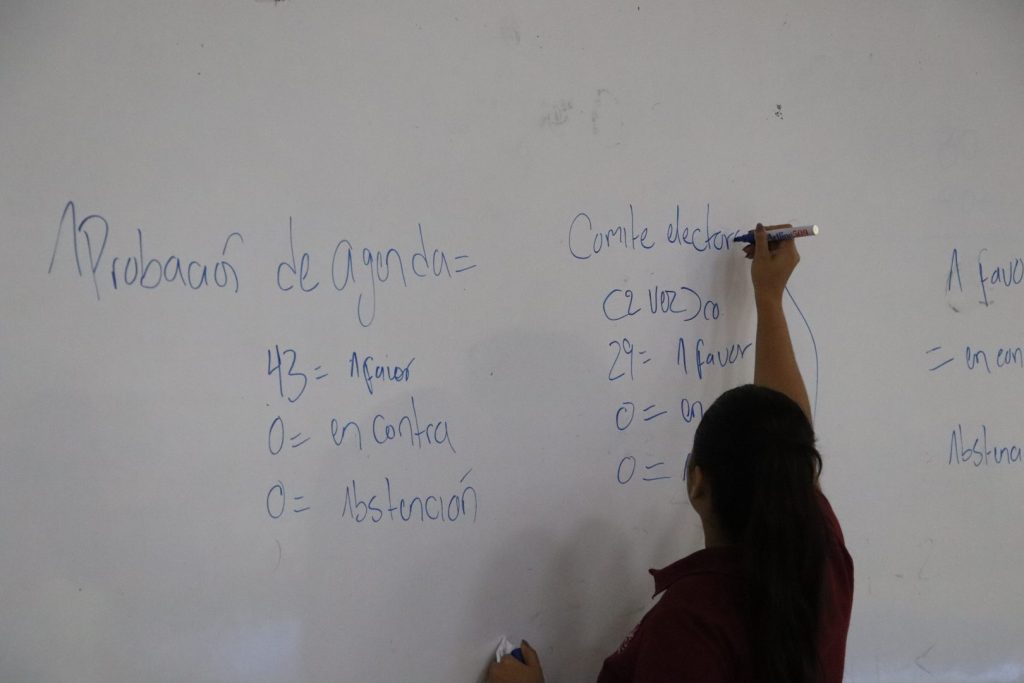 Aprobación de agenda=
43= A favor
0= en contra
0= Abstención
Comite elector
(2 voz) co
29= A favor
0= en
0=
A favo
= en con
Abstenc
509